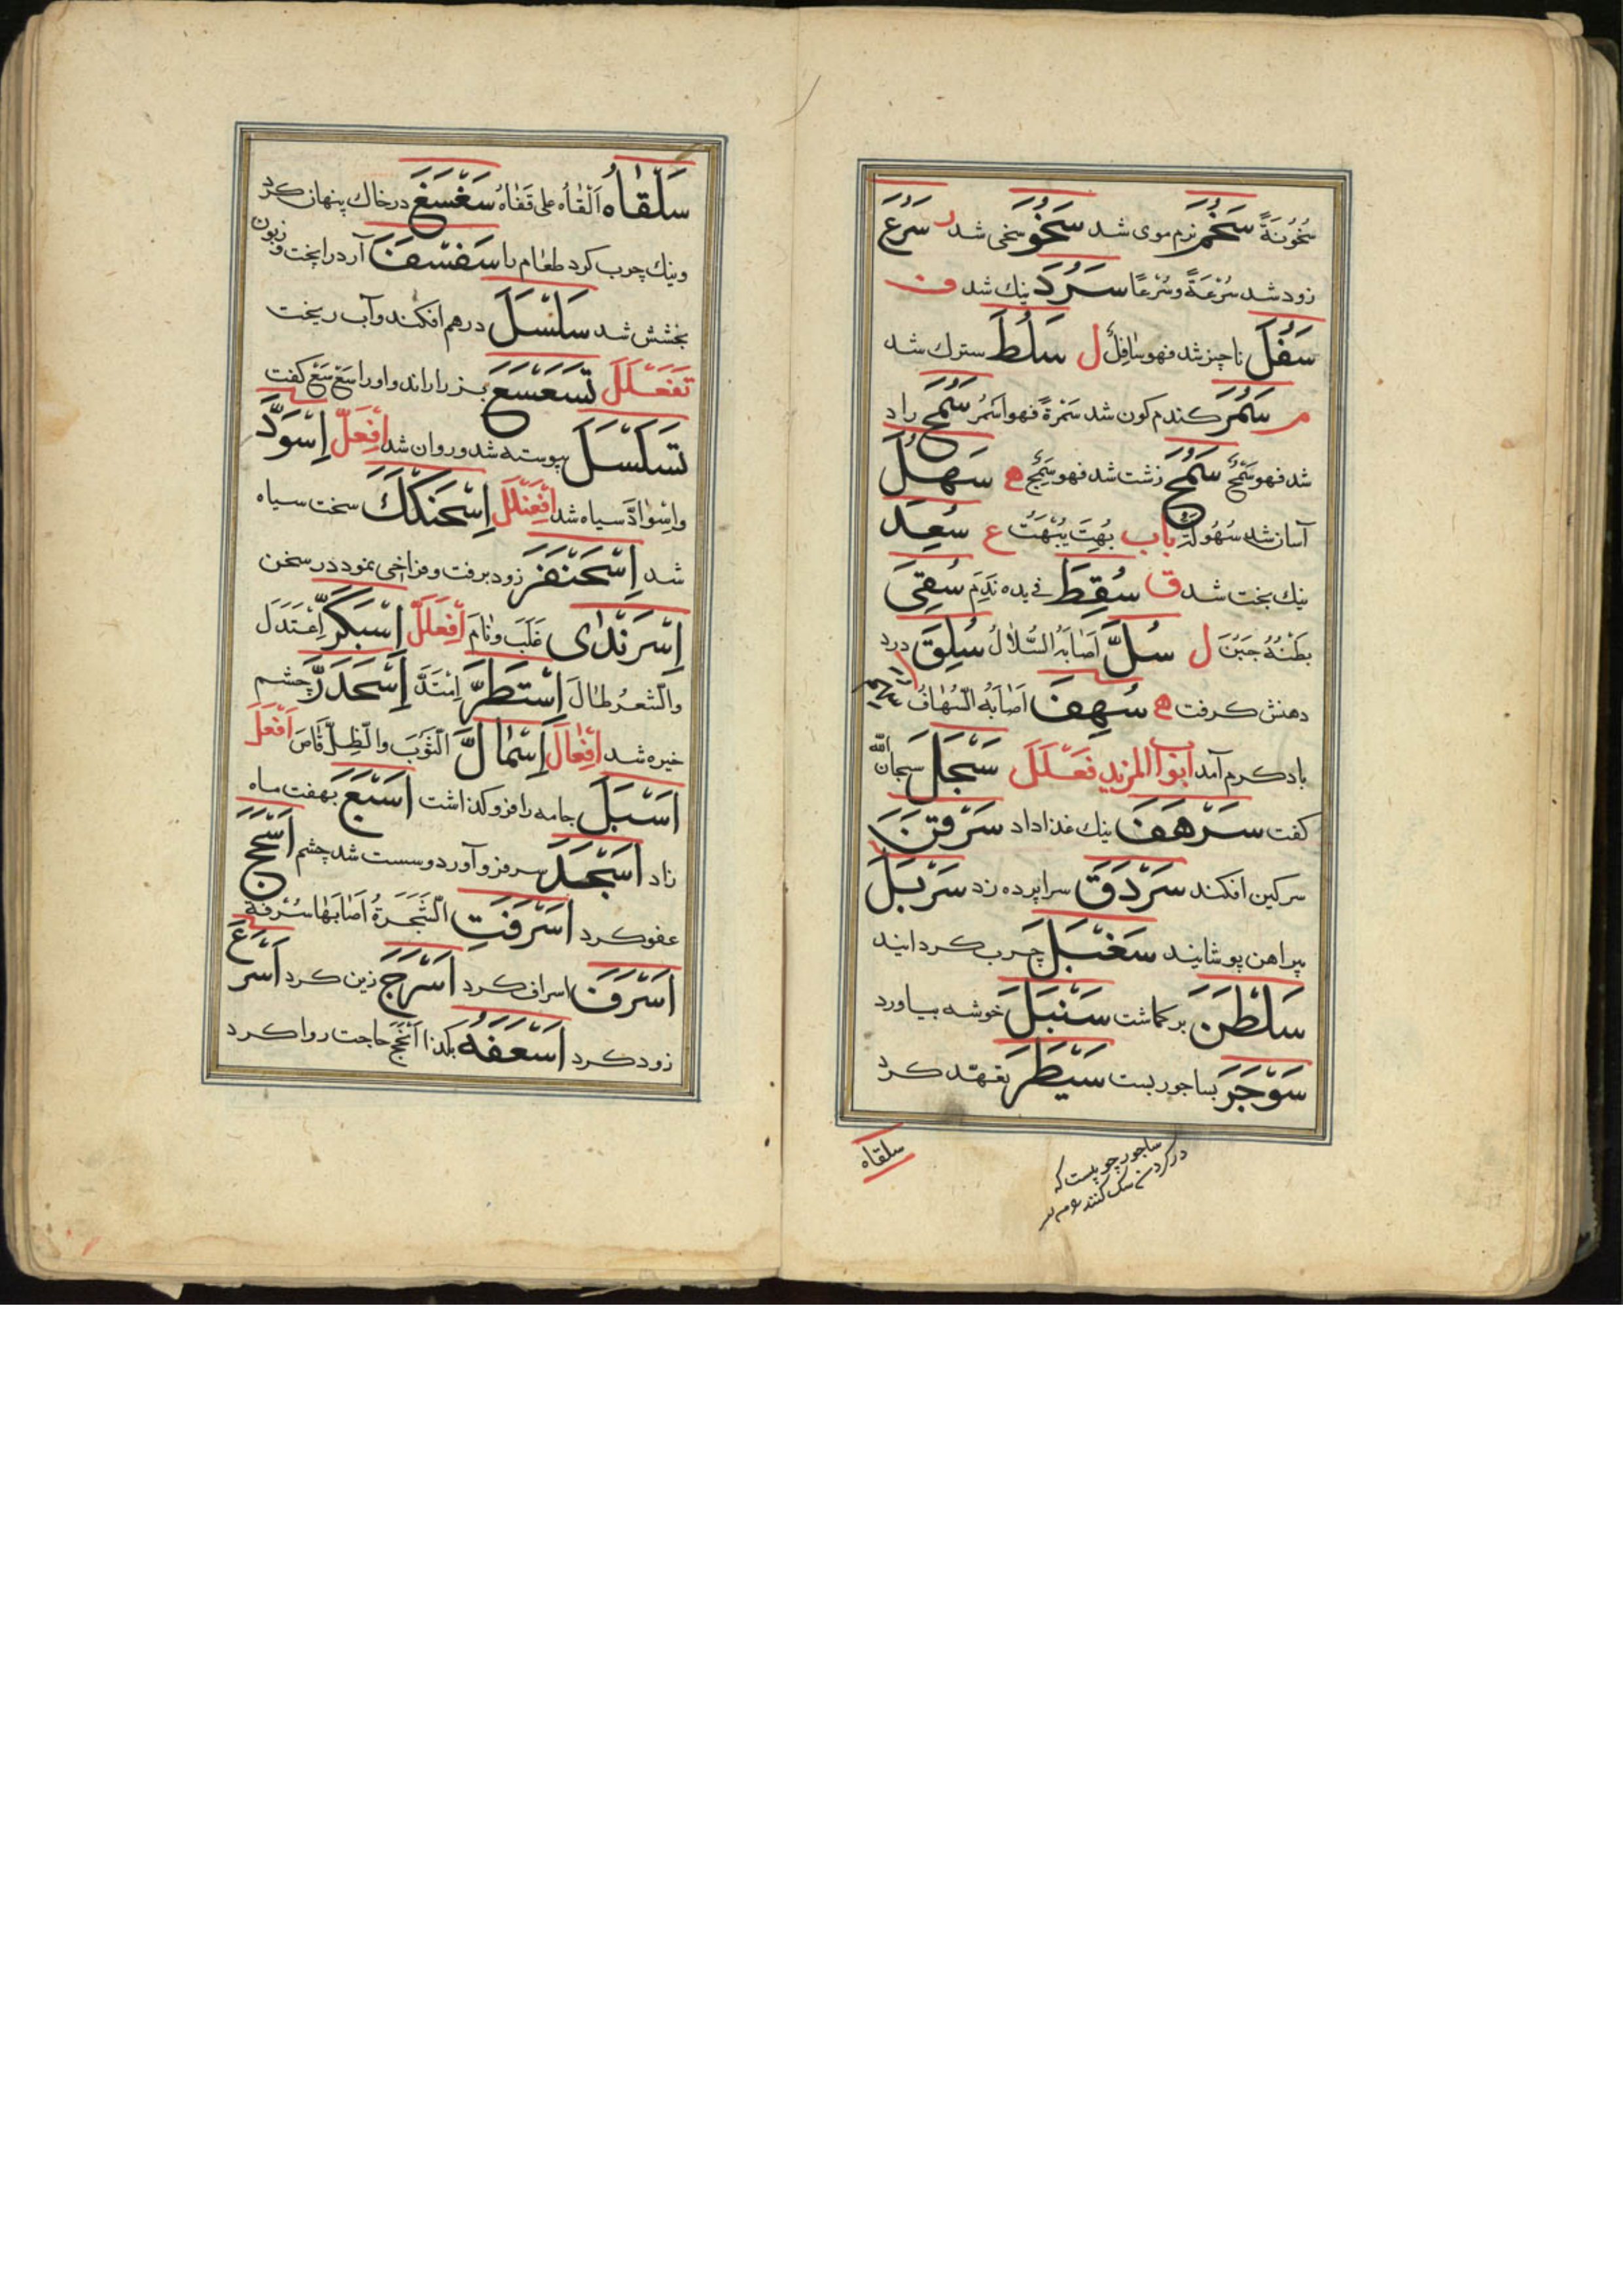 سُخُونَةً سَخُمَ نرم موی شد سَخُوَ سخی شد ر سَرُعَ
زود شد سُرْعَةً وسُرْعًا سَرُدَ نیك شد ف
سَفُلَ ناچیز شد فهو سَافِلٌ ل سَلُطَ سترك شد
م سَمُرَ کندم کون شد سُمْرَةً فهو اَسْمَرُ سَمُحَ راد
شد فهو سَمْحٌ سَمُجَ زشت شد فهو سَمْجٌ ه سَهُلَ
آسان شد سُهُولَةً باب بُهِتَ یُبْهَتُ ع سُعِدَ
نیك بخت شد ق سُقِطَ فی یده نَدِمَ سُقِیَ
بَطْنُهُ حَبِنَ ل سُلَّ اَصَابَهُ السُّلَالُ سُلِقَ درد
دهنش کرفت ه سُهِفَ اَصَابَهُ السُّهَافُ
باد کرم آمد ابواب المزید فَعْلَلَ سَبْحَلَ سبحان الله
کفت سَرْهَفَ نیك غذا داد سَرْقَنَ
سرکین افکند سَرْدَقَ سراپرده زد سَرْبَلَ
پیراهن پوشانید سَغْبَلَ چرب کردانید
سَلْطَنَ بر کماشت سَنْبَلَ خوشه بیاورد
سَوْجَرَ بساجور بست سَیْطَرَ تعهّد کرد
ساجور چوبیست که
در کردن سک کنند
سلقاه
سَلْقَاهُ اَلْقَاهُ علی قَفَاهُ سَغْسَغَ در خاك پنهان کرد
ونیك چرب کرد طعام را سَفْسَفَ آرد را بیخت و زبون
بخشش شد سَلْسَلَ درهم افکند وآب ریخت
تَفَعْلَلَ تَسَعْسَعَ بز را راند واورا سَعْ سَعْ کفت
تَسَلْسَلَ پیوسته شد وروان شد اِفْعَلَّ اِسْوَدَّ
واسْوَادَّ سیاه شد اِفْعَنْلَلَ اِسْحَنْكَكَ سخت سیاه
شد اِسْحَنْفَرَ زود برفت وفراخی نمود در سخن
اِسْرَنْدٰی غَلَبَ ونَامَ اِفْعَلَلَّ اِسْبَكَرَّ اِعْتَدَلَ
والشَّعرُ طَالَ اِسْبَطَرَّ اِمْتَدَّ اِسْمَدَرَّ چشم
خیره شد اِفْعَالَّ اِسْمَالَّ الثَّوبُ والظِّلُّ قَلَصَ اَفْعَلَ
اَسْبَلَ جامه را فرو کذاشت اَسْبَعَ بهفت ماه
زاد اَسْجَدَ سر فرو آورد وسست شد چشم اَسْجَحَ
عفو کرد اَسْرَفَتِ الشَّجَرَةُ اَصَابَهَا سُرْفَةٌ
اَسْرَفَ اسراف کرد اَسْرَجَ زین کرد اَسْرَعَ
زود کرد اَسْعَفَهُ بكذا اَنْجَحَ حاجت روا کرد